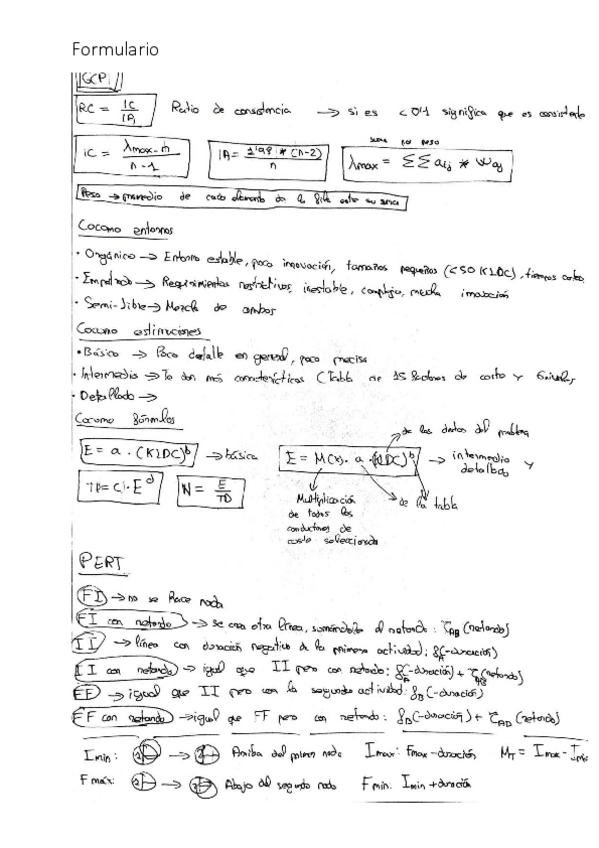 Formulario
GCP
RC = IC / IA Ratio de consistencia → si es < 0'1 significa que es consistente
suma por peso
IC = λmax - n / n - 1 IA = 1'98 * (n-2) / n λmax = ΣΣ aij * Waj
Peso → promedio de cada elemento de la fila entre su suma
Cocomo entornos
· Orgánico → Entorno estable, poca innovación, tamaños pequeños (<50 KLDC), tiempos cortos
· Empotrado → Requerimientos restrictivos, inestable, complejo, mucha innovación
· Semi-libre → Mezcla de ambos
Cocomo estimaciones
· Básico → Poco detalle en general, poco precisa
· Intermedio → Ya dan más características (Tabla de 15 factores de costo y 6 niveles
· Detallado →
Cocomo fórmulas
de los datos del problema
E = a · (KLDC)^b → básica E = M(x) · a · (KLDC)^b → intermedio y detallado
TD = c · E^d N = E / TD
Multiplicación de todos los conductores de costo seleccionado
de la tabla
PERT
FI → no se hace nada
FI con retardo → se crea otra línea, sumándole el retardo: ζAB (retardo)
II → línea con duración negativa de la primera actividad: (-duración)
II con retardo → igual que II pero con retardo: (-duración) + (retardo)
FF → igual que II pero con la segunda actividad: (-duración)
FF con retardo → igual que FF pero con retardo: (-duración) + (retardo)
Imin: → Arriba del primer nodo Imax: Fmax - duración MT = Imax - Imin
Fmáx: → Abajo del segundo nodo Fmin: Imin + duración